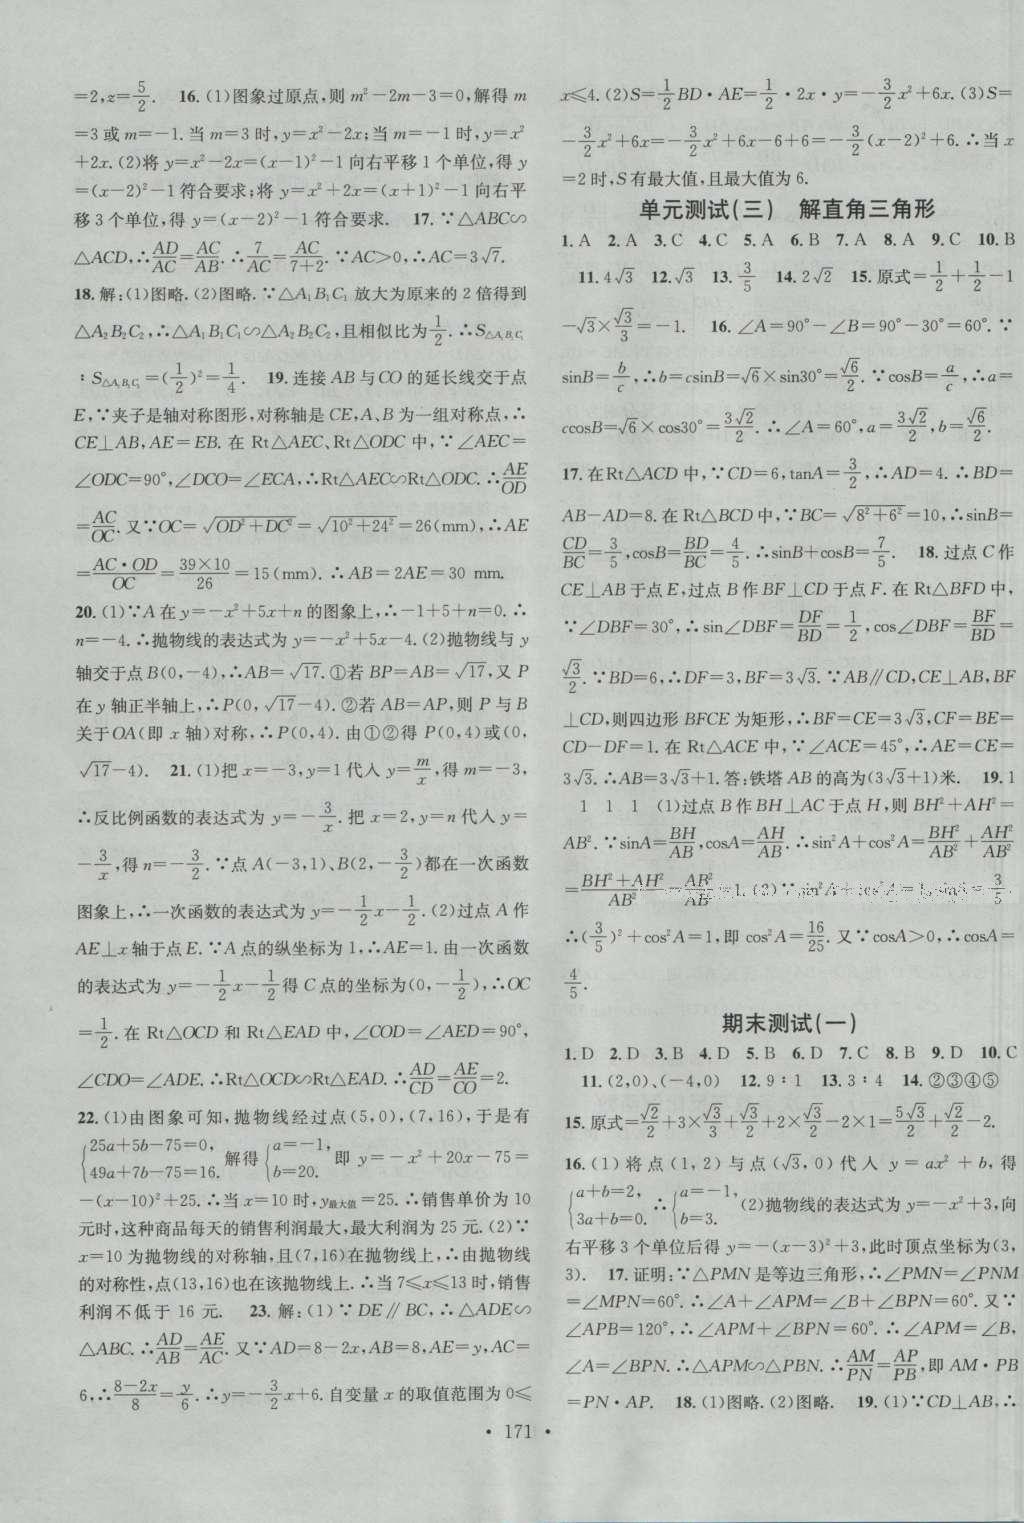 =2,z=5/2.　16.(1)图象过原点,则 m²-2m-3=0,解得 m
=3或 m=-1.当 m=3 时,y=x²-2x;当 m=-1 时,y=x²
+2x.(2)将 y=x²-2x=(x-1)²-1 向右平移 1 个单位,得 y
=(x-2)²-1 符合要求;将 y=x²+2x=(x+1)²-1 向右平
移 3 个单位,得 y=(x-2)²-1 符合要求.　17.∵△ABC∽
△ACD,∴AD/AC=AC/AB.∴7/AC=AC/(7+2).∵AC>0,∴AC=3√7.
18.解:(1)图略.(2)图略.∵△A₁B₁C₁ 放大为原来的 2 倍得到
△A₂B₂C₂,∴△A₁B₁C₁∽△A₂B₂C₂,且相似比为1/2.∴S△A₁B₁C₁
∶S△A₂B₂C₂=(1/2)²=1/4.　19.连接 AB 与CO 的延长线交于点
E,∵夹子是轴对称图形,对称轴是 CE,A、B 为一组对称点,∴
CE⊥AB,AE=EB.在 Rt△AEC、Rt△ODC 中,∵∠AEC=
∠ODC=90°,∠DCO=∠ECA,∴Rt△AEC∽Rt△ODC.∴AE/OD
=AC/OC.又∵OC=√(OD²+DC²)=√(10²+24²)=26(mm),∴AE
=AC·OD/OC=39×10/26=15(mm).∴AB=2AE=30 mm.
20.(1)∵A 在 y=-x²+5x+n 的图象上,∴-1+5+n=0.∴
n=-4.∴抛物线的表达式为 y=-x²+5x-4.(2)抛物线与 y
轴交于点 B(0,-4),∴AB=√17.①若 BP=AB=√17,又 P
在 y 轴正半轴上,∴P(0,√17-4).②若 AB=AP,则 P 与 B
关于OA(即 x 轴)对称,∴P(0,4).由①②得 P(0,4)或(0,
√17-4).　21.(1)把 x=-3,y=1 代入 y=m/x,得 m=-3,
∴反比例函数的表达式为 y=-3/x.把 x=2,y=n 代入 y=
-3/x,得 n=-3/2.∵点 A(-3,1)、B(2,-3/2)都在一次函数
图象上,∴一次函数的表达式为 y=-1/2x-1/2.(2)过点 A 作
AE⊥x 轴于点 E.∵A 点的纵坐标为 1,∴AE=1.由一次函数
的表达式为 y=-1/2x-1/2得 C 点的坐标为(0,-1/2),∴OC
=1/2.在 Rt△OCD 和 Rt△EAD 中,∠COD=∠AED=90°,
∠CDO=∠ADE.∴Rt△OCD∽Rt△EAD.∴AD/CD=AE/CO=2.
22.(1)由图象可知,抛物线经过点(5,0),(7,16),于是有
{25a+5b-75=0, 49a+7b-75=16. 解得{a=-1, b=20. 即 y=-x²+20x-75=
-(x-10)²+25.∴当 x=10 时,y最大值=25.∴销售单价为 10
元时,这种商品每天的销售利润最大,最大利润为 25 元.(2)∵
x=10 为抛物线的对称轴,且(7,16)在抛物线上,∴由抛物线
的对称性,点(13,16)也在该抛物线上.∴当 7≤x≤13 时,销售
利润不低于 16 元.　23.解:(1)∵DE∥BC,∴△ADE∽
△ABC.∴AD/AB=AE/AC.又∵AD=8-2x,AB=8,AE=y,AC=
6,∴(8-2x)/8=y/6.∴y=-3/2x+6.自变量 x 的取值范围为 0≤
x≤4.(2)S=1/2BD·AE=1/2·2x·y=-3/2x²+6x.(3)S=
-3/2x²+6x=-3/2x²+6x-6+6=-3/2(x-2)²+6.∴当 x
=2 时,S 有最大值,且最大值为 6.
单元测试(三)　解直角三角形
1.A　2.A　3.C　4.C　5.A　6.B　7.A　8.A　9.C　10.B
11.4√3　12.√3　13.3/5　14.2√2　15.原式=1/2+1/2-1
-√3×√3/3=-1.　16.∠A=90°-∠B=90°-30°=60°.∵
sinB=b/c,∴b=csinB=√6×sin30°=√6/2.∵cosB=a/c,∴a=
ccosB=√6×cos30°=3√2/2.∴∠A=60°,a=3√2/2,b=√6/2.
17.在Rt△ACD 中,∵CD=6,tanA=3/2,∴AD=4.∴BD=
AB-AD=8.在 Rt△BCD 中,∵BC=√(8²+6²)=10,∴sinB=
CD/BC=3/5,cosB=BD/BC=4/5.∴sinB+cosB=7/5.　18.过点 C 作
CE⊥AB 于点 E,过点 B 作 BF⊥CD 于点 F.在 Rt△BFD 中,
∵∠DBF=30°,∴sin∠DBF=DF/BD=1/2,cos∠DBF=BF/BD=
√3/2.∵BD=6,∴DF=3,BF=3√3.∵AB∥CD,CE⊥AB,BF
⊥CD,则四边形 BFCE 为矩形,∴BF=CE=3√3,CF=BE=
CD-DF=1.在 Rt△ACE 中,∵∠ACE=45°,∴AE=CE=
3√3.∴AB=3√3+1.答:铁塔 AB 的高为(3√3+1)米.　19.1
1　1　1　(1)过点 B 作 BH⊥AC 于点 H,则 BH²+AH²=
AB².∵sinA=BH/AB,cosA=AH/AB,∴sin²A+cos²A=BH²/AB²+AH²/AB²
=(BH²+AH²)/AB²=AB²/AB²=1.(2)∵sin²A+cos²A=1, 3/5
∴(3/5)²+cos²A=1,即 cos²A=16/25.又∵cosA>0,∴cosA=
4/5.
期末测试(一)
1.D　2.D　3.B　4.D　5.B　6.D　7.C　8.B　9.D　10.C
11.(2,0)、(-4,0)　12.9∶1　13.3∶4　14.②③④⑤
15.原式=√2/2+3×√3/3+√3/2+2×√3/2-2×1=5√3/2+√2/2-2.
16.(1)将点(1,2)与点(√3,0)代入 y=ax²+b,得
{a+b=2, 3a+b=0. ∴{a=-1, b=3. (2)抛物线的表达式为 y=-x²+3,向
右平移 3 个单位后得 y=-(x-3)²+3,此时顶点坐标为(3,
3).　17.证明:∵△PMN 是等边三角形,∴∠PMN=∠PNM
=∠MPN=60°.∴∠A+∠APM=∠B+∠BPN=60°.又∵
∠APB=120°,∴∠APM+∠BPN=60°.∴∠APM=∠B,
∠A=∠BPN.∴△APM∽△PBN.∴AM/PN=AP/PB,即 AM·PB
=PN·AP.　18.(1)图略.(2)图略.　19.(1)∵CD⊥AB,∴
· 171 ·